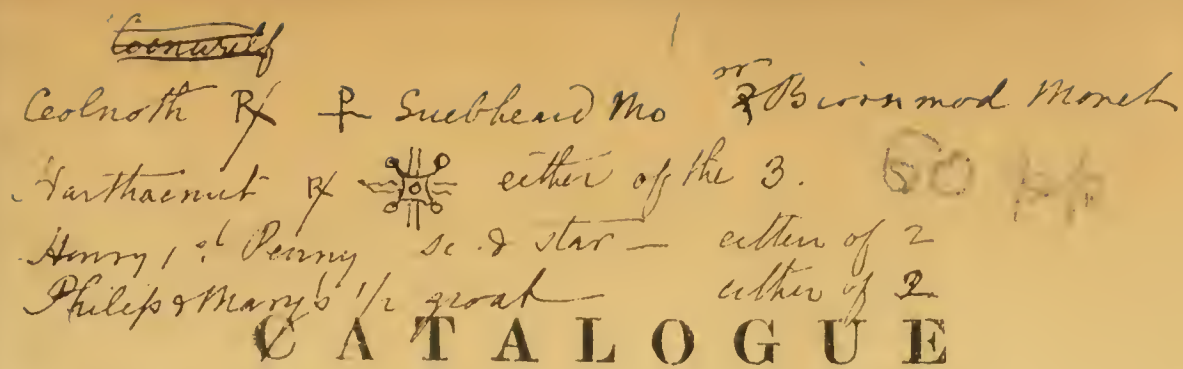 Coenwulf
Ceolnoth R Suebheard Mo or Biornmod Monet
Harthacnut R either of the 3. 50 pp
Henry 1st Penny sc. & star — either of 2
Philip & Mary's 1/2 groat — either of 2
CATALOGUE